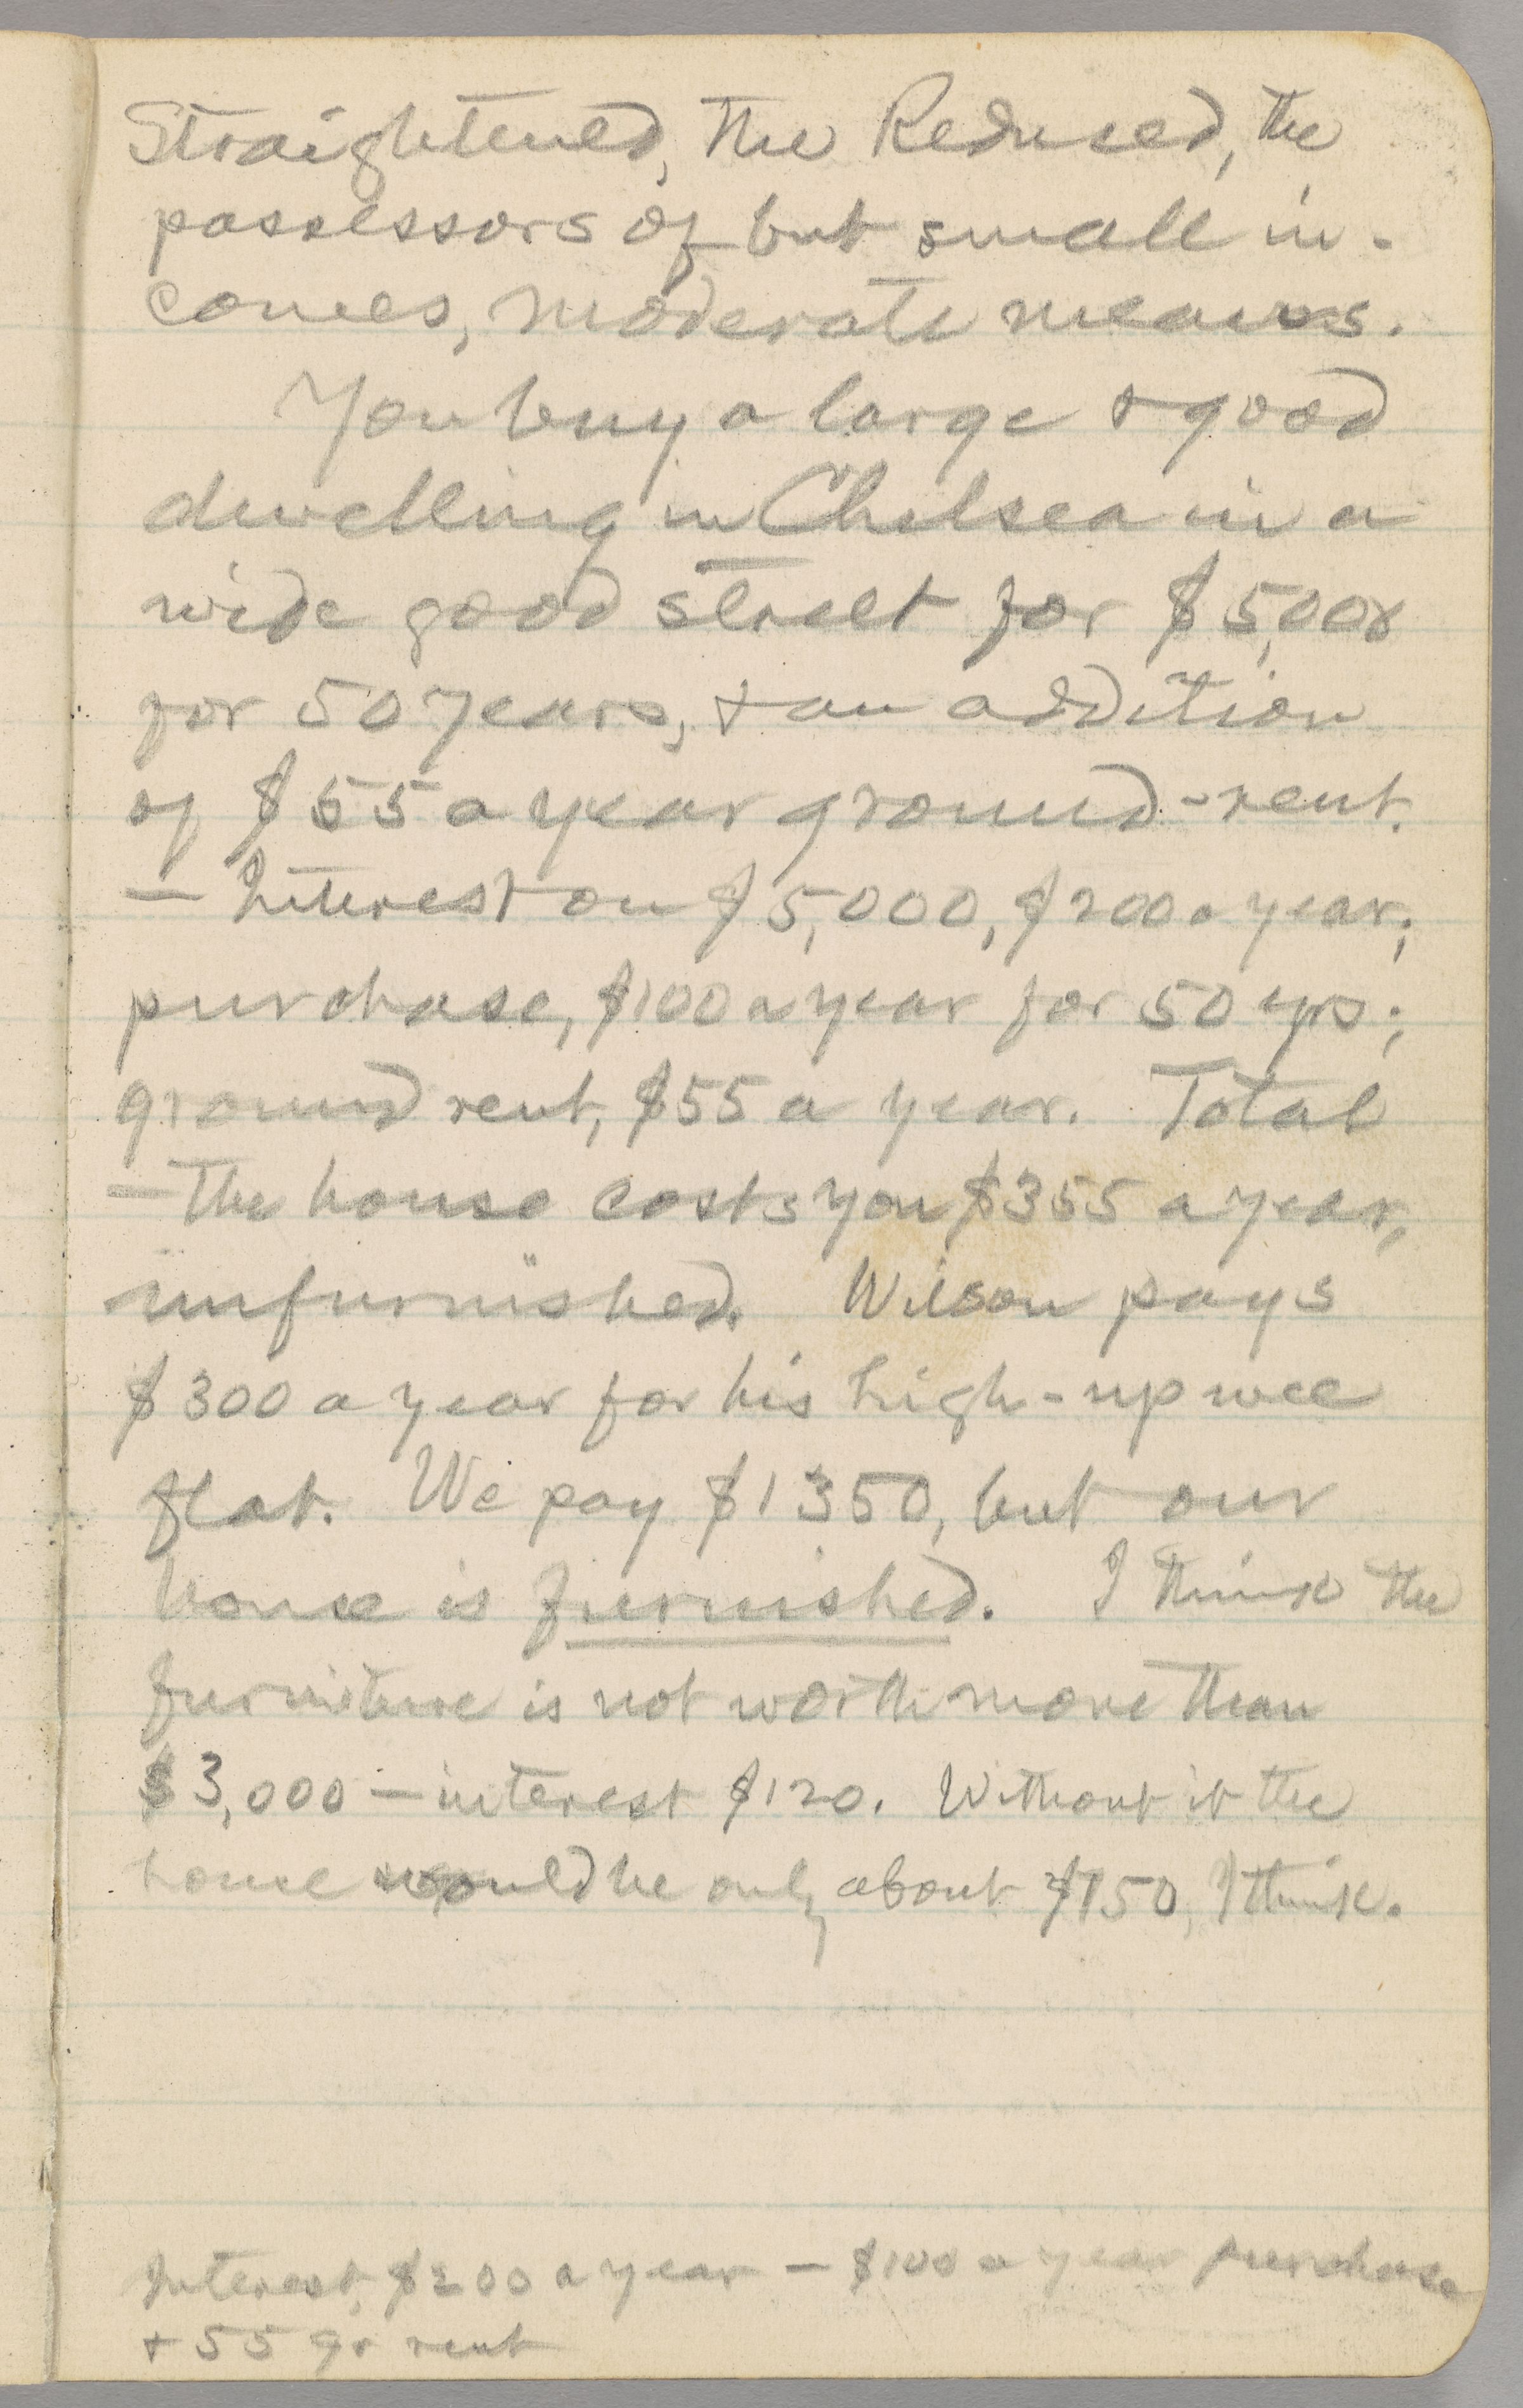 Straightened, the Reduced, the
possessors of but small in-
comes, moderate means.
You buy a large & good
dwelling in Chelsea in a
wide good street for $5,000
for 50 years, & an addition
of $55 a year ground-rent.
— Interest on $5,000, $200 a year;
purchase, $100 a year for 50 yrs;
ground rent, $55 a year. Total
— the house costs you $355 a year,
unfurnished. Wilson pays
$300 a year for his high-up wee
flat. We pay $1350, but our
house is furnished. I think the
furniture is not worth more than
$3,000 — interest $120. Without it the
house would be only about $750, I think.
Interest, $200 a year — $100 a year purchase
& 55 gr rent